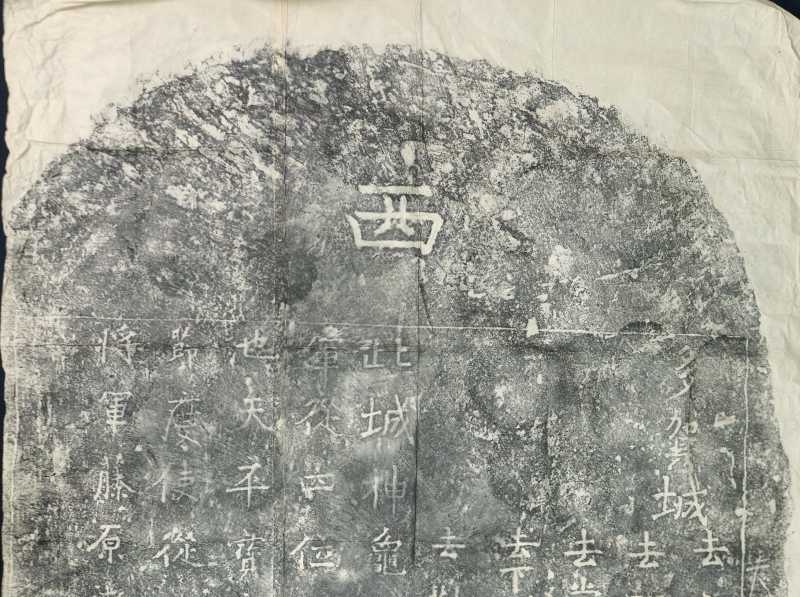 西
多賀城
去
去
去常
去下
去
此城神龜
軍從四位
也天平寶
節度使從
將軍藤原